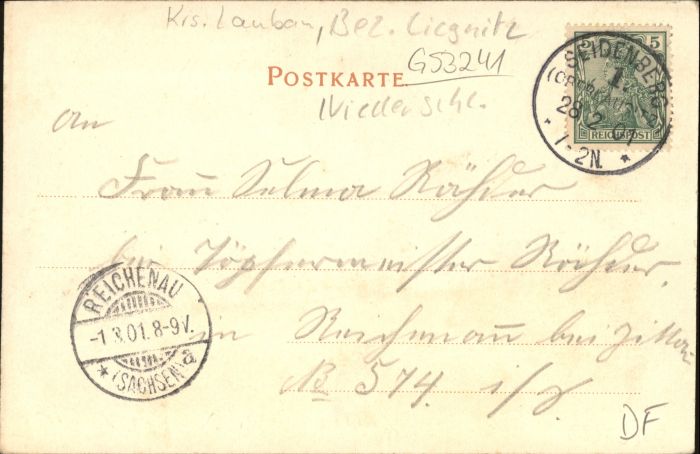 Krs. Lauban, Bez. Liegnitz
G53241
POSTKARTE
Niederschl.
5 5
REICHSPOST
SEIDENBERG
1.
28 2 01
* 1-2N. *
An
Frau Selma Rähder
bei Töpfermeister Rähder,
in Reichenau bei Zittau
No 574. i/S.
REICHENAU
-1.3.01.8-9V.
* (SACHSEN) a
DF